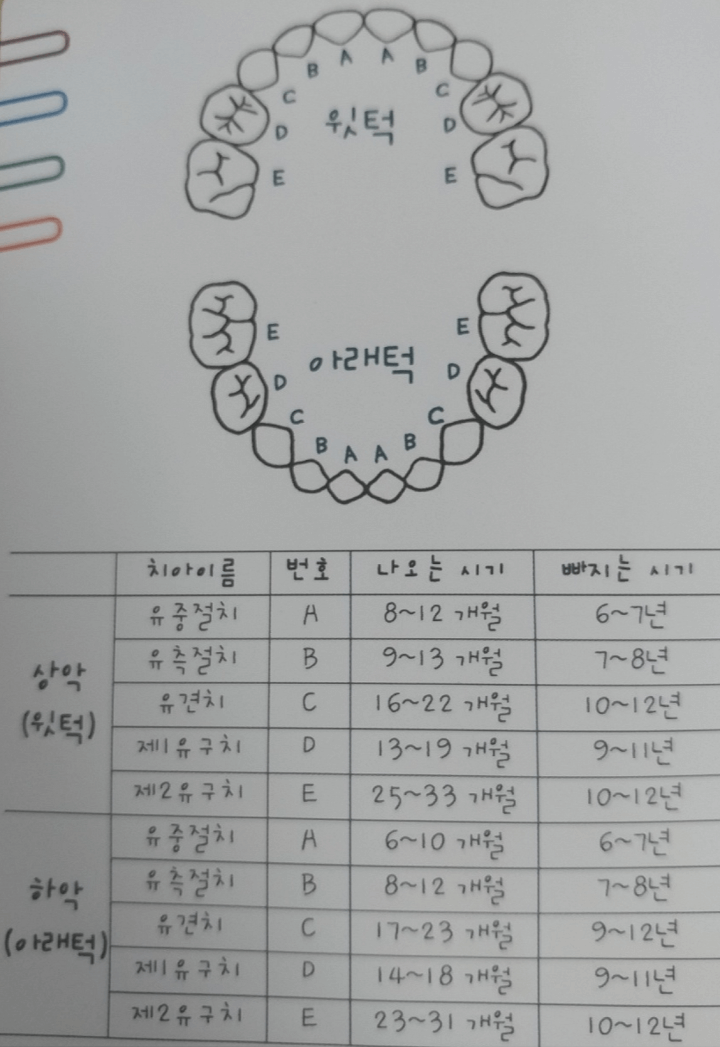 A A
B B
C C
D 윗턱 D
E E
E E
D 아래턱 D
C C
B A A B
치아이름 번호 나오는 시기 빠지는 시기
상악
(윗턱)
유중절치 A 8~12 개월 6~7년
유측절치 B 9~13 개월 7~8년
유견치 C 16~22 개월 10~12년
제1유구치 D 13~19 개월 9~11년
제2유구치 E 25~33 개월 10~12년
하악
(아래턱)
유중절치 A 6~10 개월 6~7년
유측절치 B 8~12 개월 7~8년
유견치 C 17~23 개월 9~12년
제1유구치 D 14~18 개월 9~11년
제2유구치 E 23~31 개월 10~12년